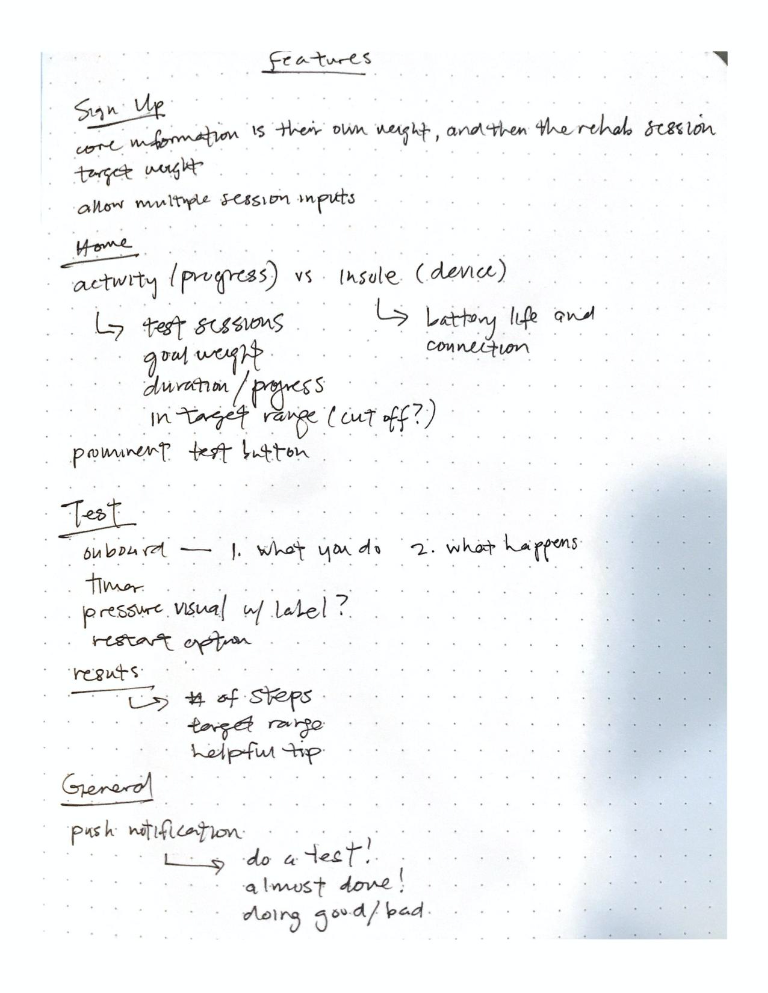 Features
Sign Up
core information is their own weight, and then the rehab session
target weight
allow multiple session inputs
Home
activity (progress) vs insole (device)
↳ test sessions ↳ battery life and
goal weight connection
duration/progress
in target range (cut off?)
prominent test button
Test
onboard — 1. what you do 2. what happens
timer
pressure visual w/ label?
restart option
resuts
↳ # of steps
target range
helpful tip
General
push notification
↳ do a test!
almost done!
doing good/bad